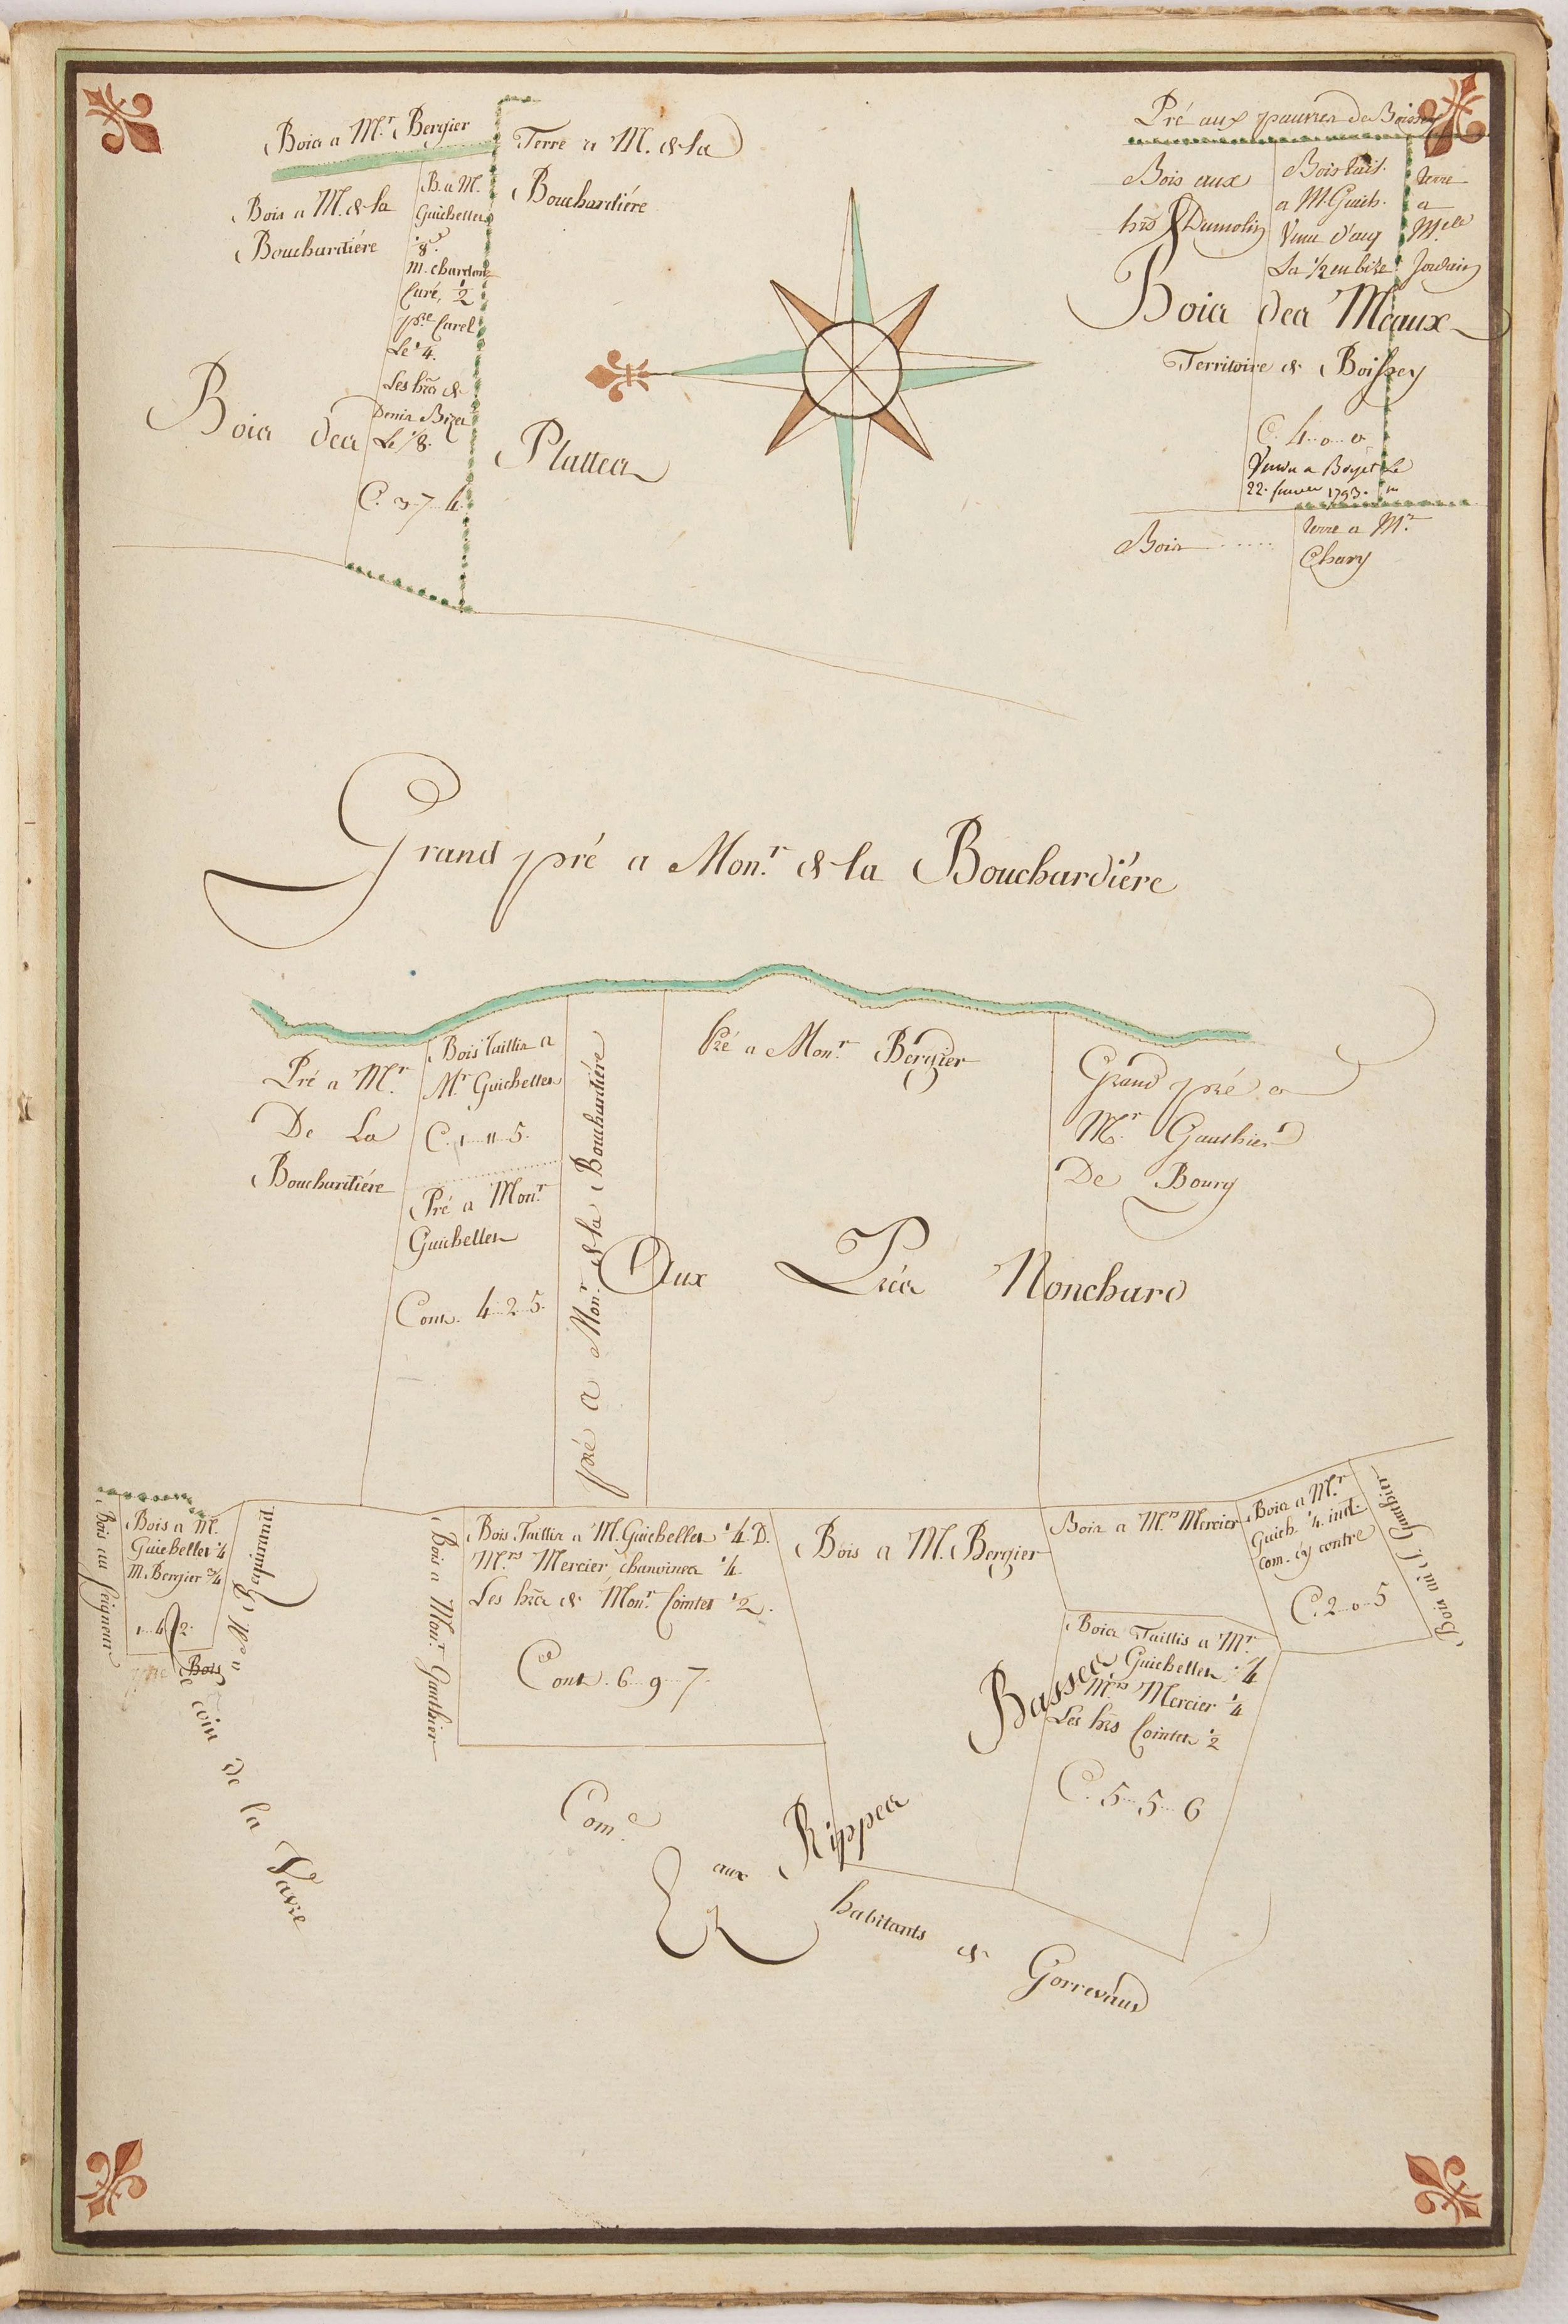 Bois a M.r Bergier
Terre a M. de la
Bouchardiére
Bois a M. de la
Bouchardiére
B. a M.
Guichelles
1/8.
M. Chardon
Curé, 1/2
p.re Carel
Le 1/4.
Les hrs̃ de
Denis Bizet
Le 1/8.
Bois des Plattes
C. 3..7..4.
Pré aux pauvres de Boissey
Bois aux
hrs̃ Dumolin
Bois tail.
a M. Guich.
La 1/2 en bize
Terre
a
M.elle
Jordain
Bois des Meaux
Territoire de Boissey
C. 4..0..0
Vendu a Boyet Le
22. 1793.
Bois
terre a M.r
Chary
Grand pré a Mon.r de la Bouchardiére
Pré a M.r
De La
Bouchardiére
Bois Taillis a
M.r Guichelles
C. 1..11..5.
Pré a Mon.r
Guichelles
Cont. 4..2..5.
pré a Mon.r de la Bouchardiére
Pré a Mon.r Bergier
Grand pré a
M.r Gauthier
De Boury
Aux Prés Nonchard
Bois au Seigneur
Bois a M.
Guichelles 1/4
M. Bergier 3/4
1..4..2.
Bois
coin de la Vavre
Bois a Mon.r Gauthier
Bois Taillis a M. Guichelles 1/4. D.
M.rs Mercier, chanoines 1/4.
Les hrs̃ de Mon.r Cointet 1/2.
Cont. 6..9..7.
Bois a M. Bergier
Bois a M.rs Mercier
Bois a M.r
Guich. 1/4. ind.
com. cy contre
C. 2..0..5
Bois au S. Gauthier
Bois Taillis a M.r
Guichelles 1/4
M.rs Mercier 1/4
Les hrs̃ Cointet 1/2
C. 5..5..6
Ez Rippes Basses
Com.e aux habitants de Gorrevaud